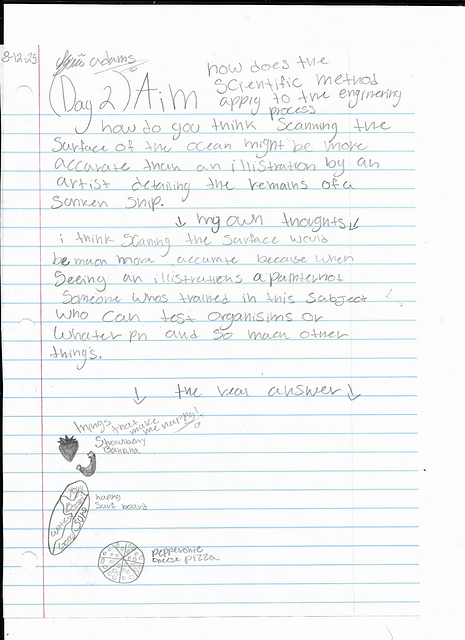 8-12-25
adams
how does the
Scientific method
apply to the engineering
process
(Day 2) Aim
how do you think scanning the
Surface of the ocean might be more
accurate than an illustration by an
artist detailing the remains of a
sunken ship.
↓ my own thoughts ↓
i think scaning the surface would
be much more accurate because when
Seeing an illustrations a painter not
Someone whos trained in this subject
who can test organisims or
whater ph and so much other
things.
↓ the real answer ↓
things that make
me happy!
Strawberry
Banana
happy
Surf board
pepperonie
cheese pizza